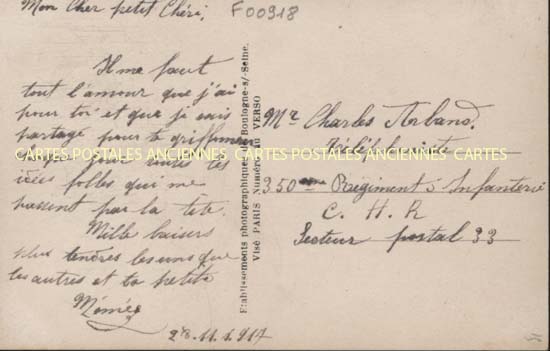 Mon Cher petit Chéri,
F00918
Il me faut
tout l'amour que j'ai
pour toi et que je sais
partagé pour te griffonner
toutes les
idées folles qui me
passent par la tete.
Mille baisers
plus tendres les uns que
les autres et ta petite
Mémée
28.11.1917
Etablissements photographiques Boulogne-s/-Seine.
Visé PARIS Numéro au VERSO
Mr Charles Arband.
Téléphoniste
350eme Régiment d'Infanterie
C. H. R
Secteur postal 33
CARTES POSTALES ANCIENNES CARTES POSTALES ANCIENNES CARTES